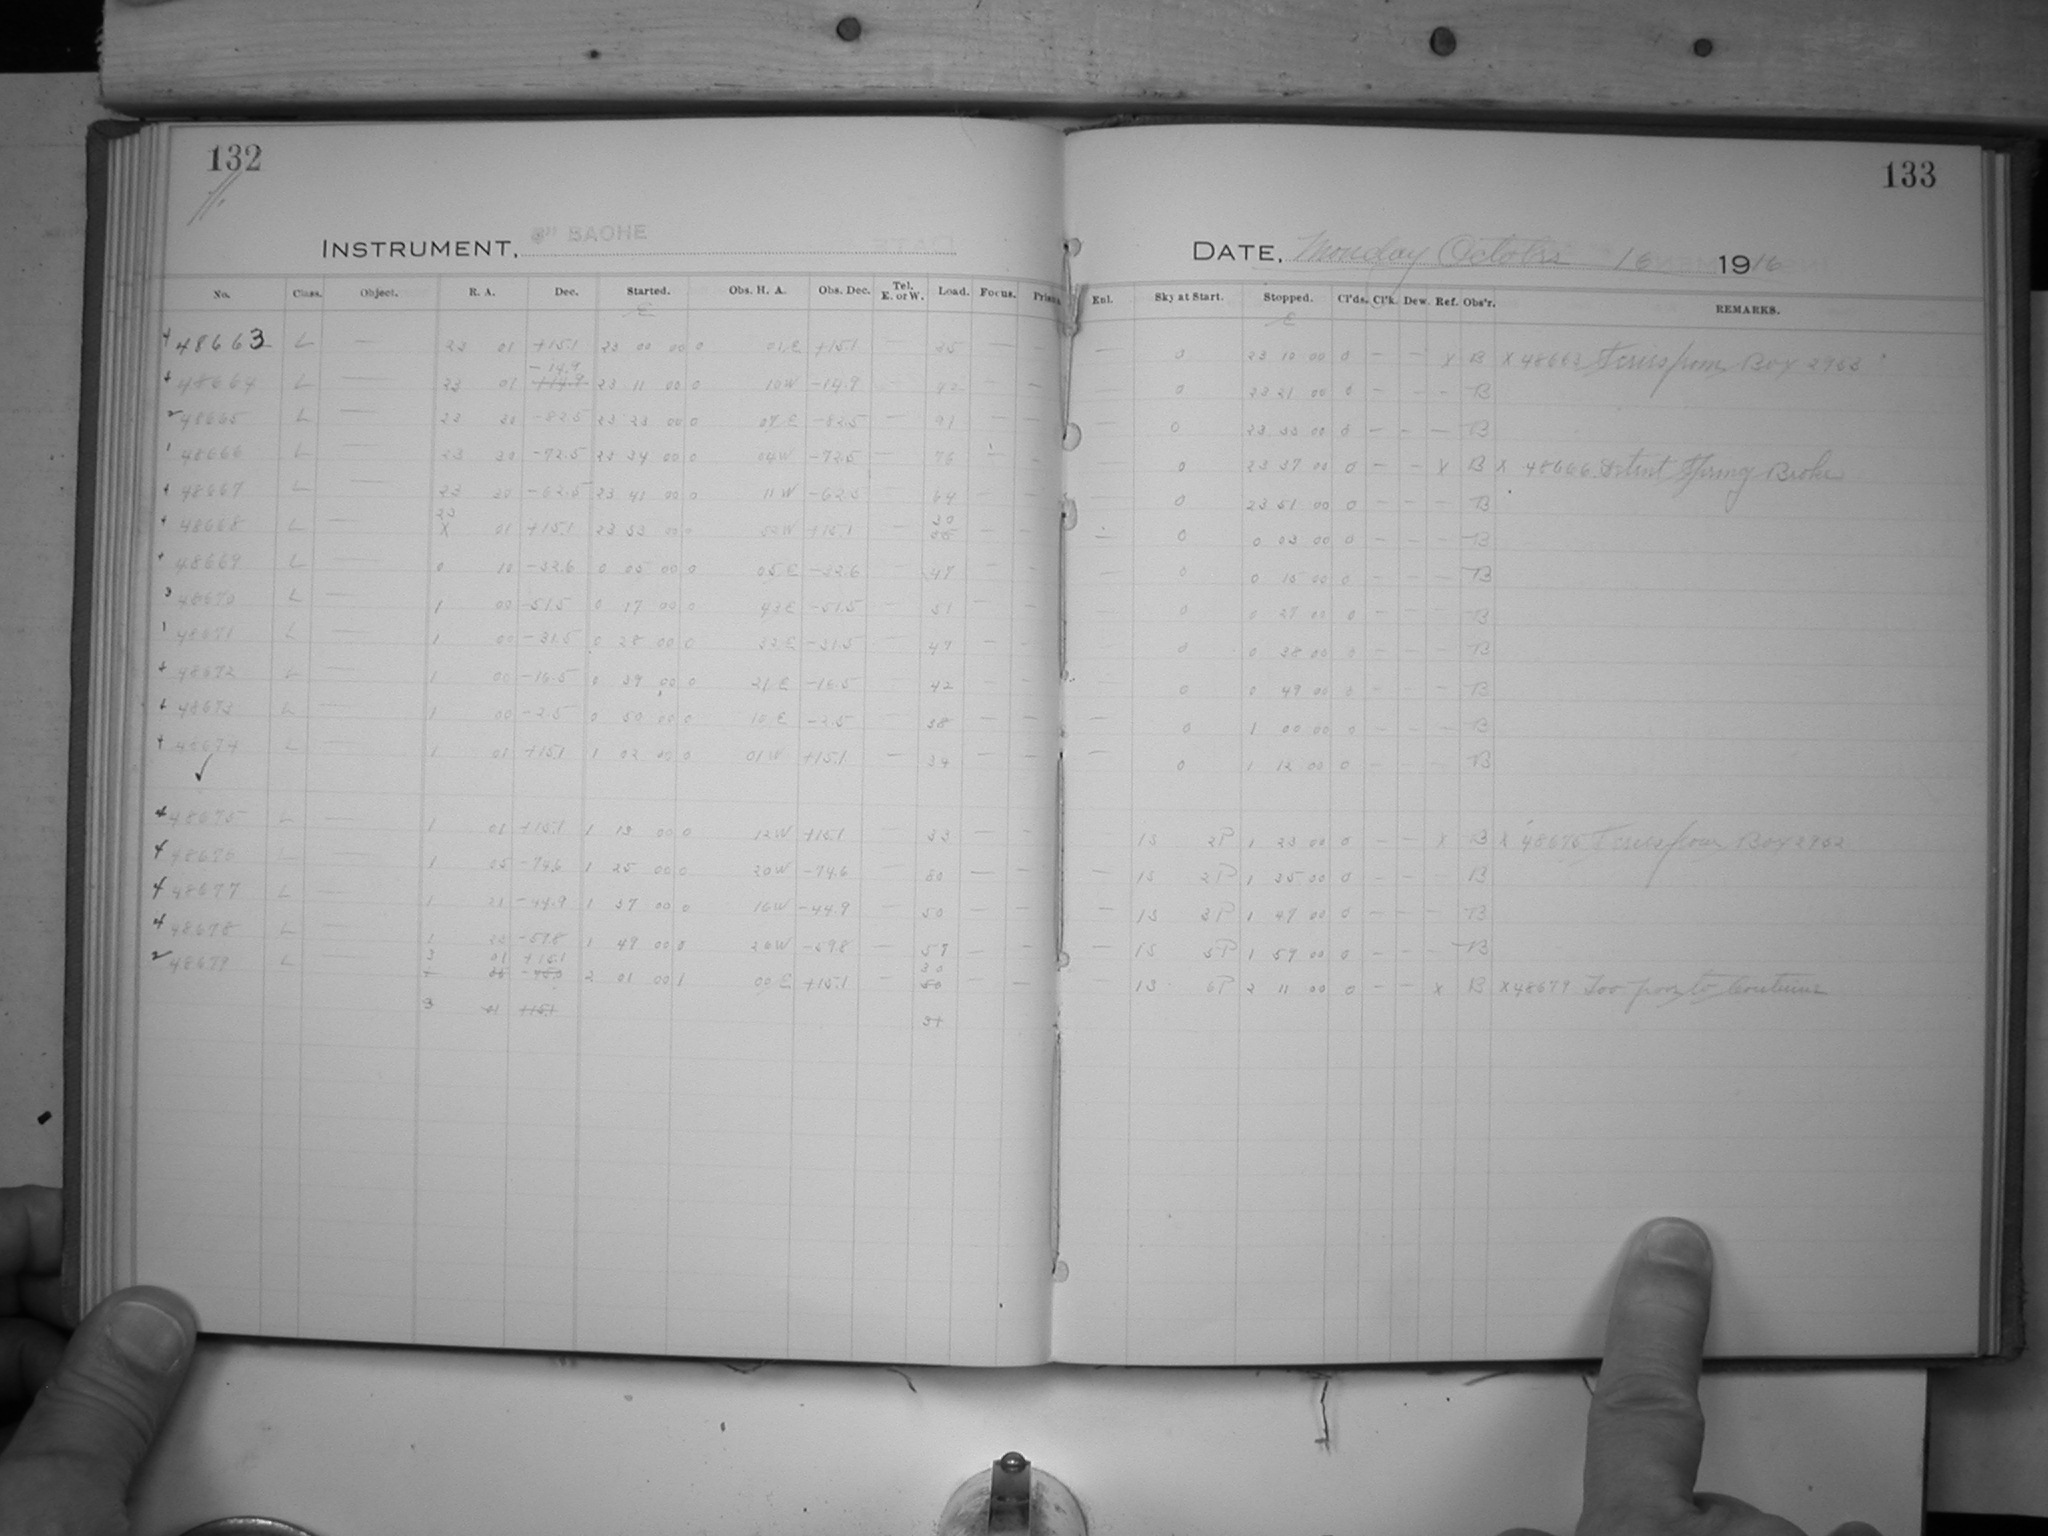 132
133
INSTRUMENT, 8" BACHE
DATE, Monday October 16 1916
No. Class. Object. R. A. Dec. Started. Obs. H. A. Obs. Dec. Tel. E. or W. Load. Focus. Prism. Enl. Sky at Start. Stopped. Cl'ds. Cl'k. Dew. Ref. Obs'r. REMARKS.
48663 L — 23 01 +15.1 23 00 00 0 01 E +15.1 — 35 — — — 0 23 10 00 0 — — X B X 48663 Series from Box 2953
-14.9
48664 L — 23 01 +14.9 23 11 00 0 10 W -14.9 — 42 — — — 0 23 21 00 0 — — — B
48665 L — 23 30 -82.5 23 23 00 0 07 E -82.5 — 91 — — — 0 23 33 00 0 — — — B
48666 L — 23 30 -72.5 23 34 00 0 04 W -72.5 — 76 — — — 0 23 37 00 0 — — X B X 48666 Detent Spring Broke
48667 L — 23 30 -62.5 23 41 00 0 11 W -62.5 — 64 — — — 0 23 51 00 0 — — — B
23 30
48668 L — X 01 +15.1 23 53 00 0 52 W +15.1 — 35 — — — 0 0 03 00 0 — — — B
48669 L — 0 10 -32.6 0 05 00 0 05 E -32.6 — 47 — — — 0 0 15 00 0 — — — B
48670 L — 1 00 -51.5 0 17 00 0 43 E -51.5 — 51 — — — 0 0 27 00 0 — — — B
48671 L — 1 00 -31.5 0 28 00 0 32 E -31.5 — 47 — — — 0 0 38 00 0 — — — B
48672 L — 1 00 -16.5 0 39 00 0 21 E -16.5 — 42 — — — 0 0 49 00 0 — — — B
48673 L — 1 00 -2.5 0 50 00 0 10 E -2.5 — 38 — — — 0 1 00 00 0 — — — B
48674 L — 1 01 +15.1 1 02 00 0 01 W +15.1 — 34 — — — 0 1 12 00 0 — — — B
48675 L — 1 01 +15.1 1 13 00 0 12 W +15.1 — 33 — — — 1S 2P 1 23 00 0 — — X B X 48675 Series from Box 2952
48676 L — 1 05 -74.6 1 25 00 0 20 W -74.6 — 80 — — — 1S 2P 1 35 00 0 — — — B
48677 L — 1 21 -44.9 1 37 00 0 16 W -44.9 — 50 — — — 1S 3P 1 47 00 0 — — — B
48678 L — 1 23 -59.8 1 49 00 0 26 W -59.8 — 57 — — — 1S 5P 1 59 00 0 — — — B
3 01 +15.1 30
48679 L — 2 01 00 1 00 E +15.1 — 50 — — — 1S 6P 2 11 00 0 — — X B X 48679 Too poor to Continue
3 01 +15.1 31